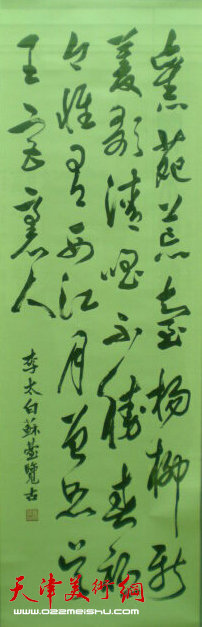 舊苑荒臺楊柳新
菱歌清唱不勝春祗
今惟有西江月曾照吳
王宮裏人
李太白蘇臺覽古
天津美术网
www.022meishu.com